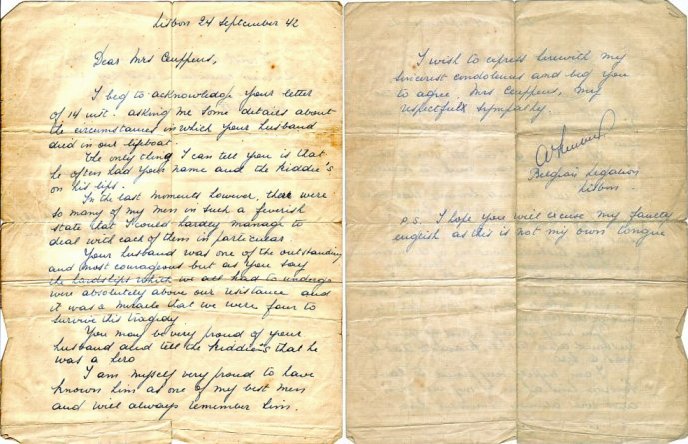 Lisbon 24 September 42
Dear Mrs Ceuppens,
I beg to acknowledge your letter
of 14 inst. asking me some details about
the circumstances in which your husband
died in our lifeboat.
The only thing I can tell you is that
he often had your name and the kiddie's
on his lips.
In the last moments however, there were
so many of my men in such a feverish
state that I could hardly manage to
deal with each of them in particular
Your husband was one of the outstanding
and most courageous but as you say
the hardships which we all had to undergo
were absolutely above our resistance and
it was a miracle that we were four to
survive this tragedy
You may be very proud of your
husband and tell the kiddie's that he
was a hero
I am myself very proud to have
known him as one of my best men
and will always remember him.
I wish to express herewith my
sincerest condolences and beg you
to agree, Mrs Ceuppens, my
respectfull sympathy.
Belgian Legation
Lisbon
P.S. I hope you will excuse my faulty
english as this is not my own tongue